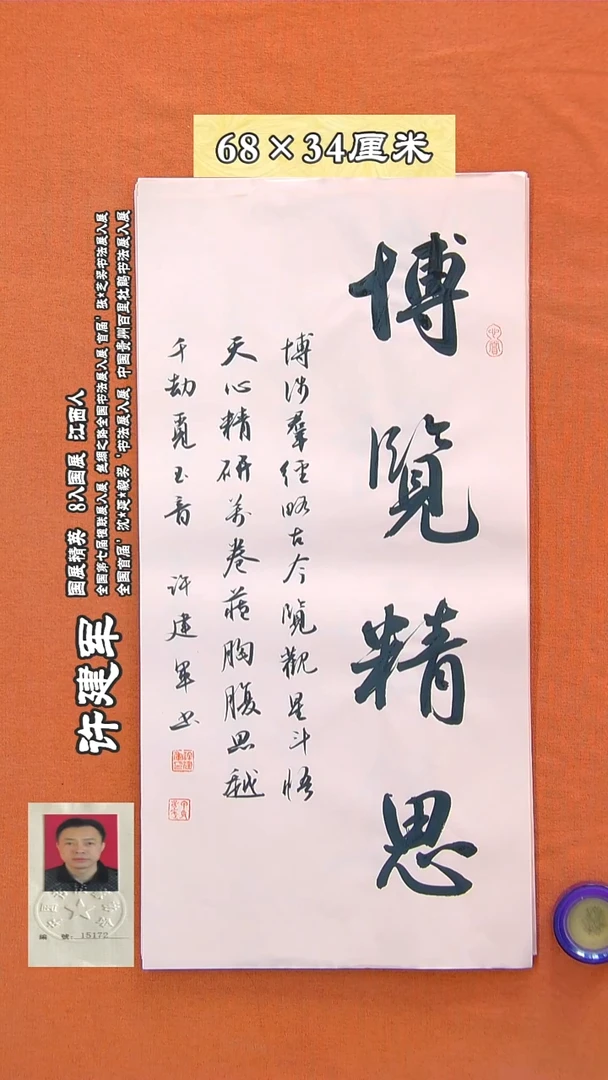 68×34厘米
博覽精思
博涉羣經略古今覽觀星斗悟
天心精研萬卷藏胸腹思越
千劫覓玉音 许建軍书
许建军
国展精英 8入国展 江西人
全国第七届楹联展入展 丝绸之路全国书法展入展 首届'张*芝奖书法展入展
全国首届'沈*延*毅奖'书法展入展 中国贵州百里杜鹃书法展入展
编 號: 15172